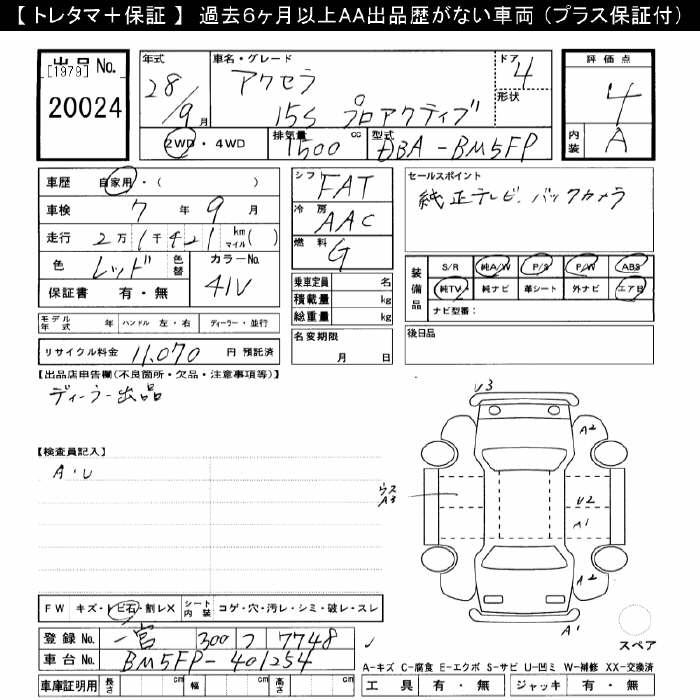 【 トレタマ＋保証 】 過去6ヶ月以上AA出品歴がない車両（プラス保証付）
出品 No.
[1979]
20024
年式
28/9 月
車名・グレード
アクセラ
15S プロアクティブ
ドア
4
形状
2WD・4WD
排気量
1500 cc
型式
DBA-BM5FP
評価点
4
内装
A
車歴 自家用・（ ）
車検 7 年 9 月
走行 2万1千421 km マイル( )
色 レッド 色替
カラーNo. 41V
保証書 有・無
シフト FAT
冷房 AAC
燃料 G
乗車定員 名
積載量 kg
総重量 kg
名変期限
月 日
セールスポイント
純正テレビ、バックカメラ
装備品
S/R 純A/W P/S P/W ABS
純TV 純ナビ 革シート 外ナビ エアB
ナビ型番：
後日品
モデル年式 年 ハンドル 左・右 ディーラー・並行
リサイクル料金 11,070 円 預託済
【出品店申告欄(不良箇所・欠品・注意事項等)】
ディーラー出品
【検査員記入】
A・U
U3
A2
ウス
A3
U2
A1
A2
A1
スペア
FW キズ・トビ石・割レX シート内装 コゲ・穴・汚レ・シミ・破レ・スレ
登録 No. 一宮 300 つ 7748
車台 No. BM5FP-401254
車庫証明用 長さ cm 幅 cm 高さ cm
A-キズ C-腐食 E-エクボ S-サビ U-凹ミ W-補修 XX-交換済
工具 有・無 ジャッキ 有・無